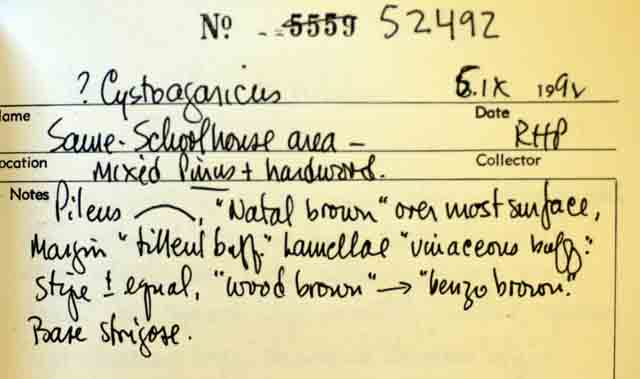 No 5559 52492
? Cystoagaricus 6.IX 1992
Name Date
Same - Schoolhouse area - RHP
Location Mixed Pinus + hardword. Collector
Notes Pileus ⌒, "Natal brown" over most surface,
Margin "tilleul buff." Lamellae "vinaceous buff."
Stipe ± equal, "wood brown" → "benzo brown."
Base strigose.